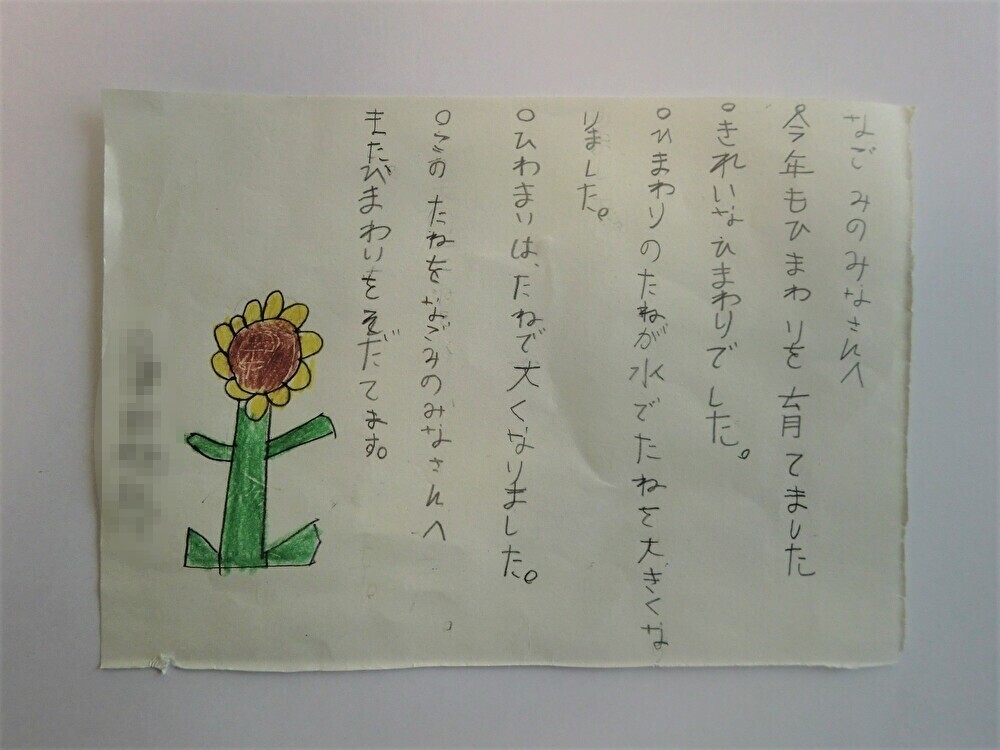 なごみのみなさんへ
○今年もひまわりを育てました
○きれいなひまわりでした。
○ひまわりのたねが水でたねを大きくな
りました。
○ひわまりは、たねで大くなりました。
○このたねをなごみのみなさんへ
またひまわりをそだてます。